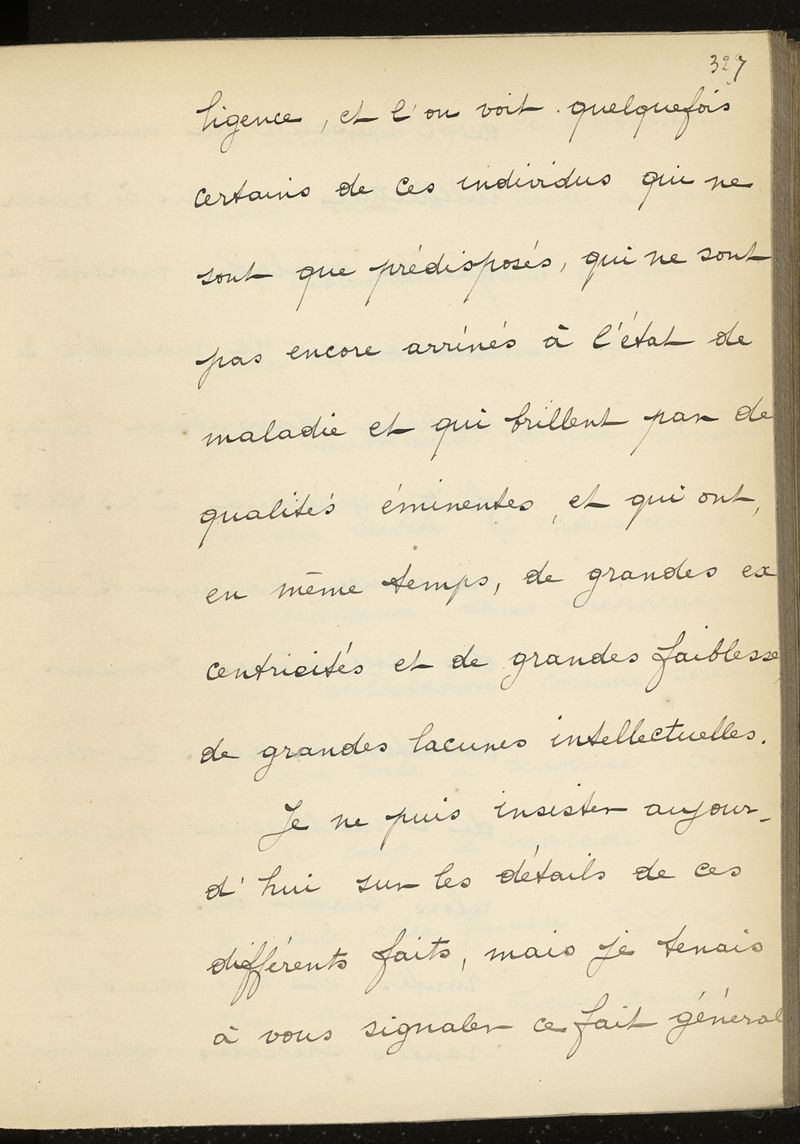 327
ligence, et l'on voit quelquefois
certains de ces individus qui ne
sont que prédisposés, qui ne sont
pas encore arrivés à l'état de
maladie et qui brillent par de
qualités éminentes, et qui ont,
en même temps, de grandes ex
centricités et de grandes faiblesse,
de grandes lacunes intellectuelles.
Je ne puis insister aujour-
d'hui sur les détails de ces
différents faits, mais je tenais
à vous signaler ce fait général